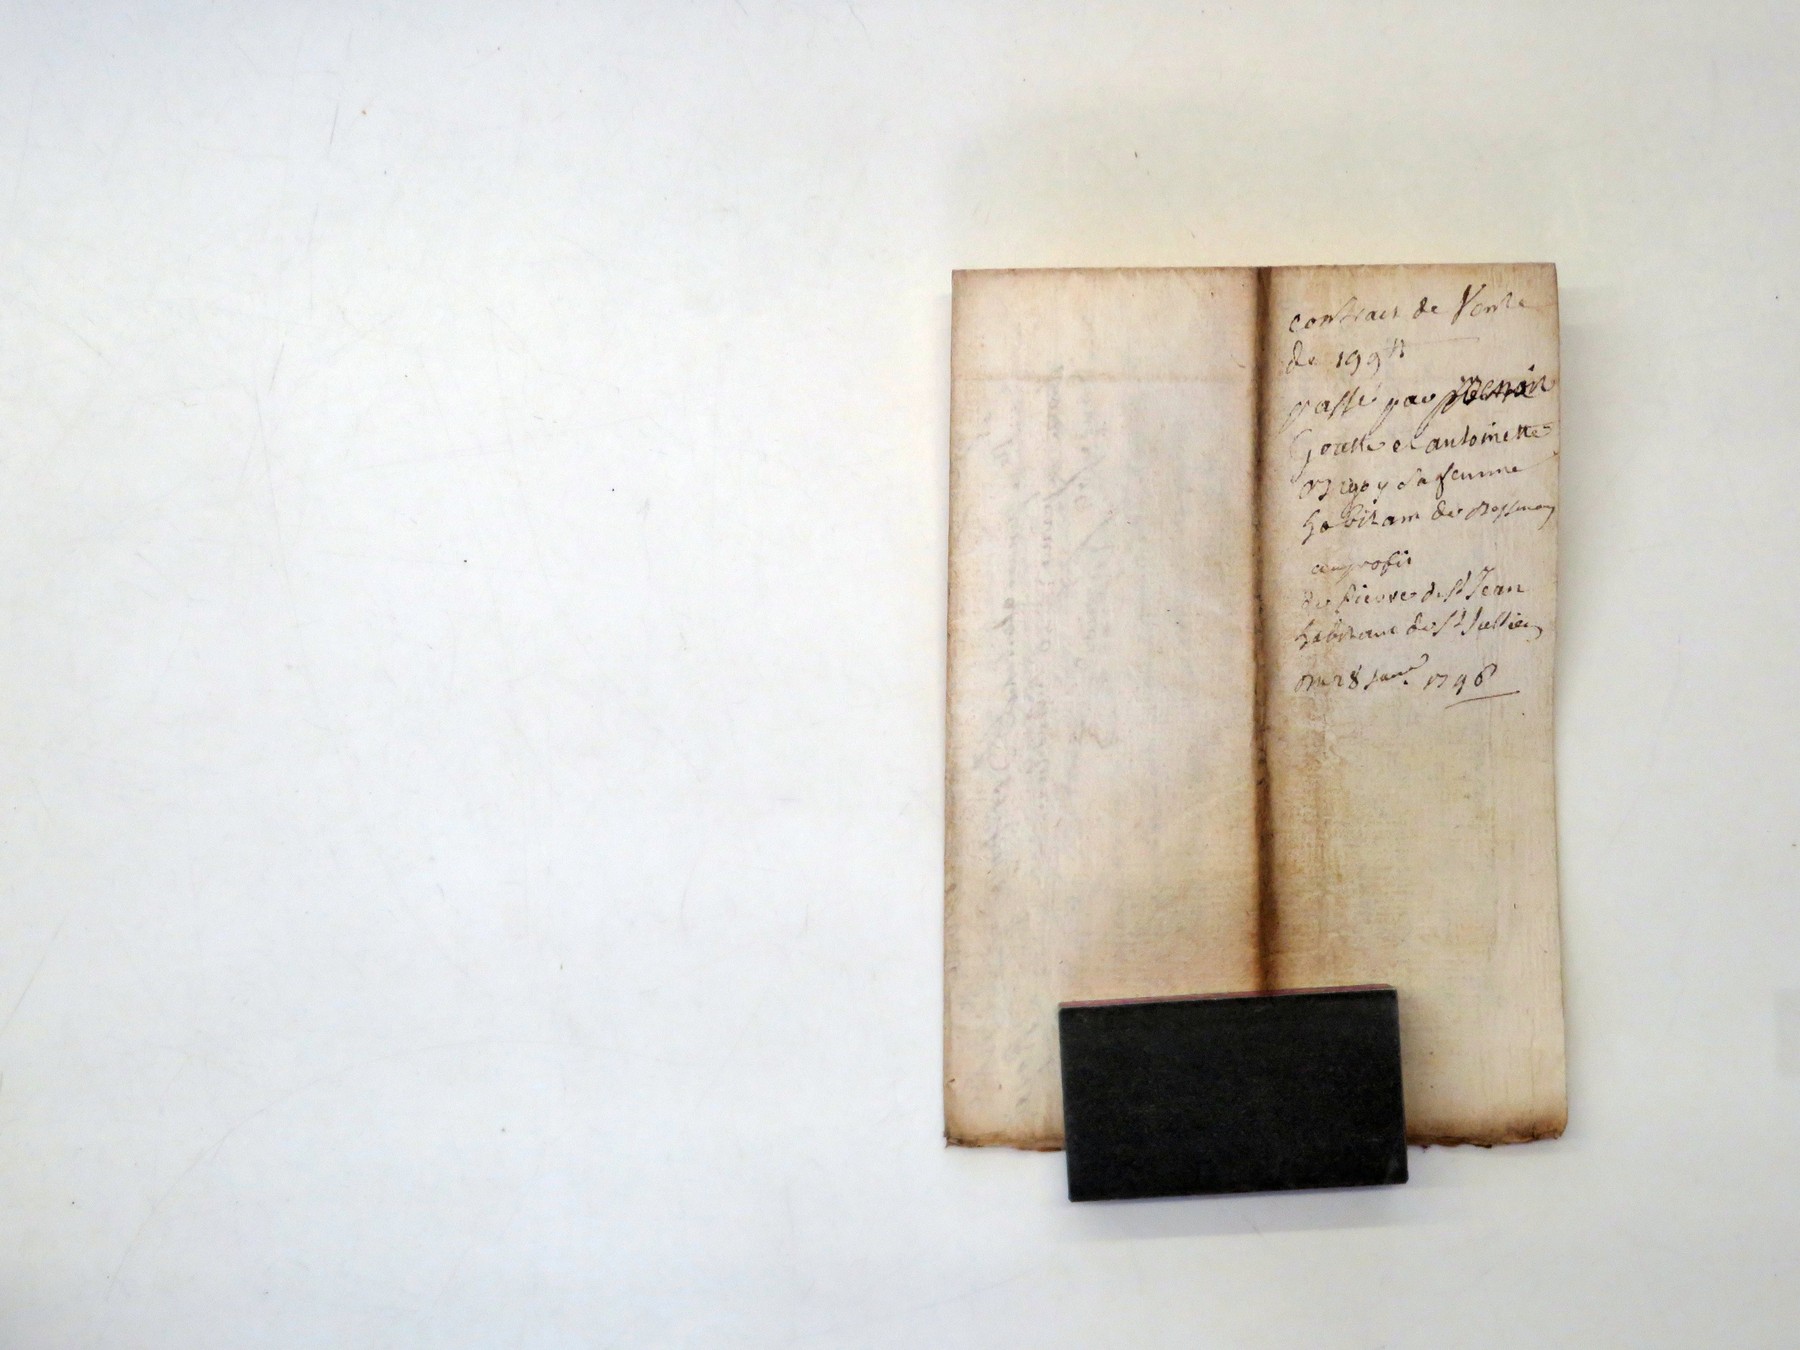 contract de Vente
de 199tt
passé par Benoit
Goutte et antoinette
sa femme
habitant de
au profit
de Pierre de St Jean
habitant de St Jullien
Du 28 janv. 1746